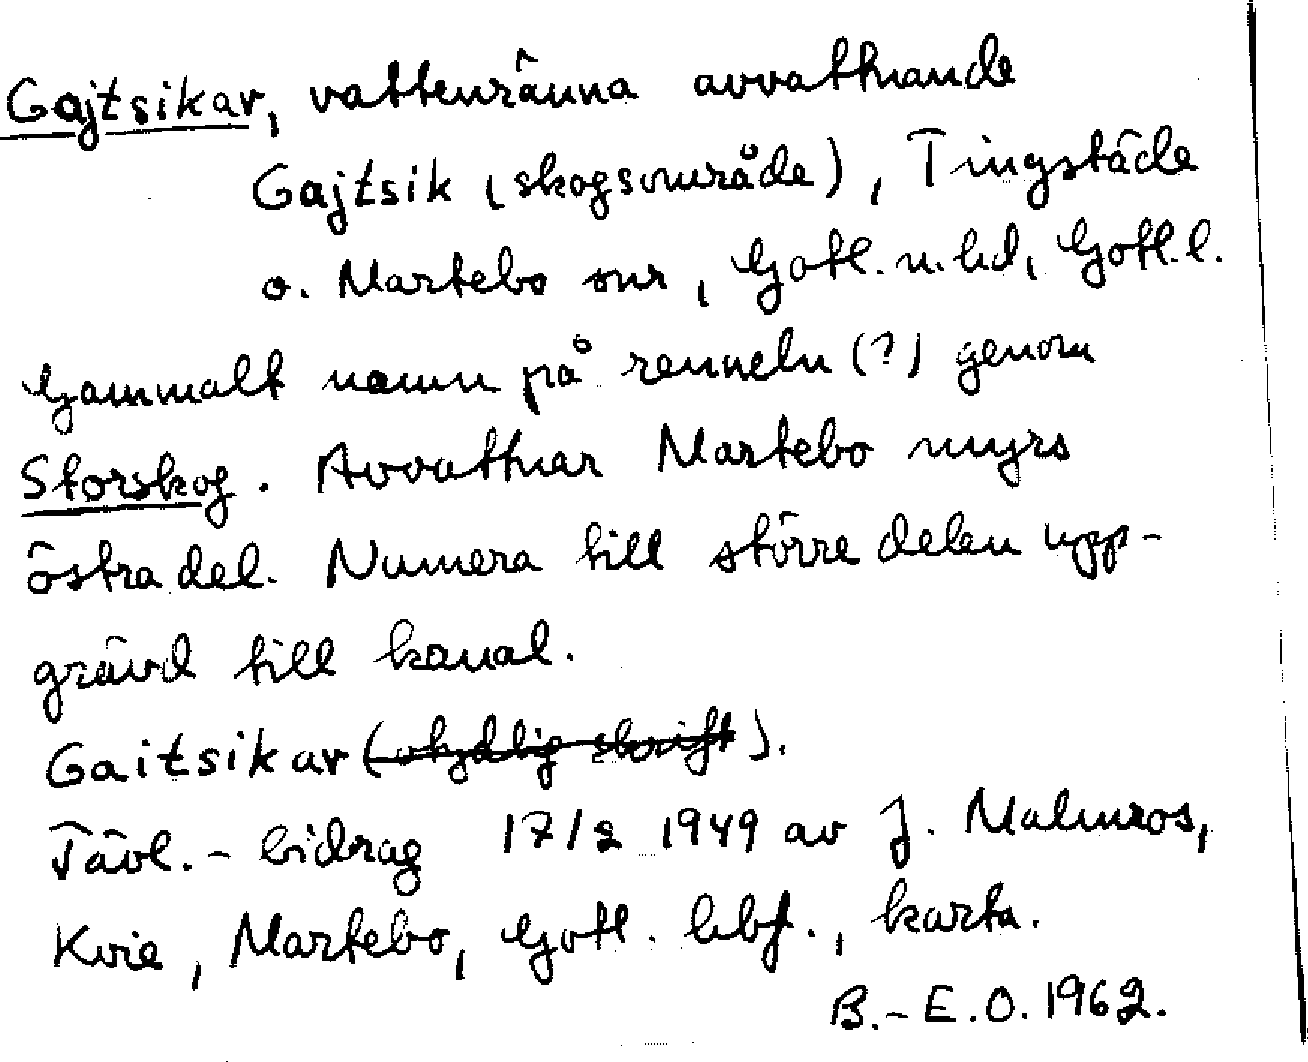 Gajtsikar, vattenränna avvattnande
Gajtsik (skogsområde), Tingstäde
o. Martebo snr, Gotl. n. hd, Gotl. l.
Gammalt namn på renneln (?) genom
Storskog. Avvattnar Martebo myrs
östra del. Numera till större delen upp-
grävd till kanal.
Gaitsikar (otydlig skrift).
Tävl.-bidrag 17/2 1949 av J. Malmros,
Kvie, Martebo, Gotl. lbf., karta.
B.-E.O. 1962.